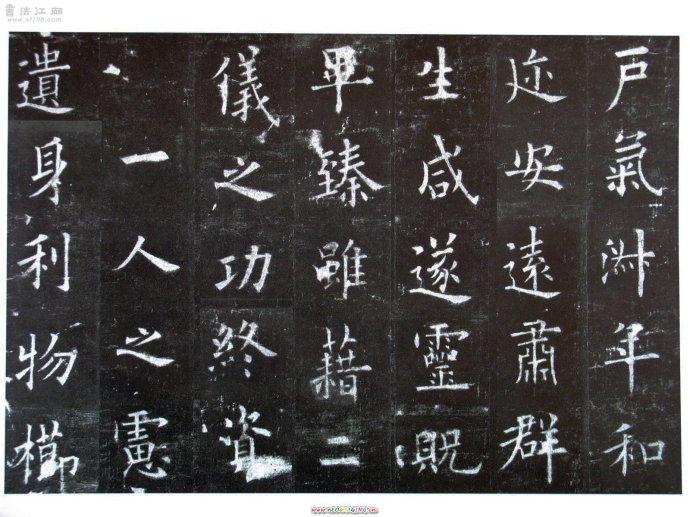 書法江湖
www.sf108.com
戶氣淑年和
迩安遠肅群
生咸遂靈貺
畢臻雖藉二
儀之功終資
一人之慮
遺身利物櫛